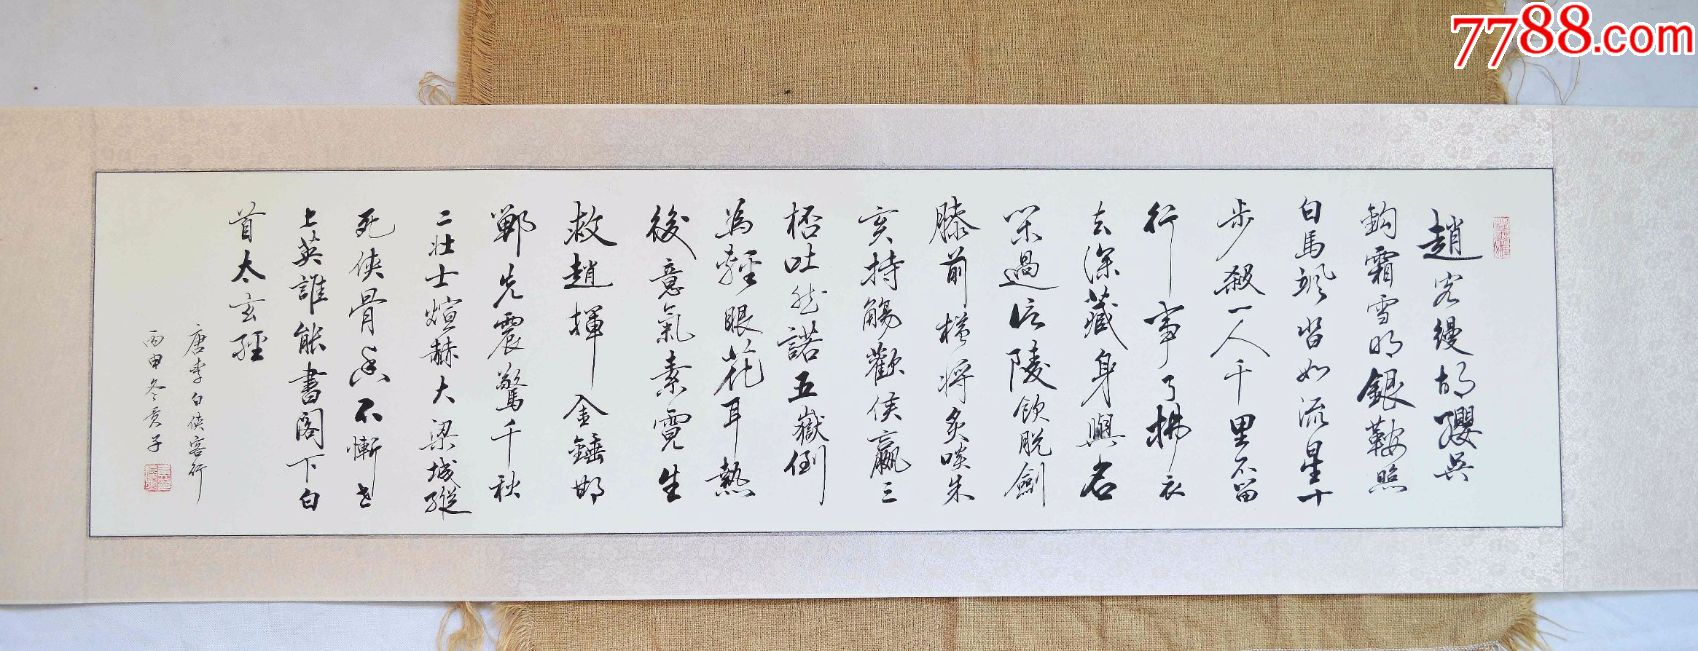 7788.com
趙客縵胡纓吳
鈎霜雪明銀鞍照
白馬颯沓如流星十
步殺一人千里不留
行事了拂衣
去深藏身與名
閑過信陵飲脫劍
膝前橫將炙啖朱
亥持觴勸侯嬴三
杯吐然諾五嶽倒
為輕眼花耳熱
後意氣素霓生
救趙揮金錘邯
鄲先震驚千秋
二壯士煊赫大梁城縱
死俠骨香不慚世
上英誰能書閣下白
首太玄經
唐李白俠客行
丙申冬子